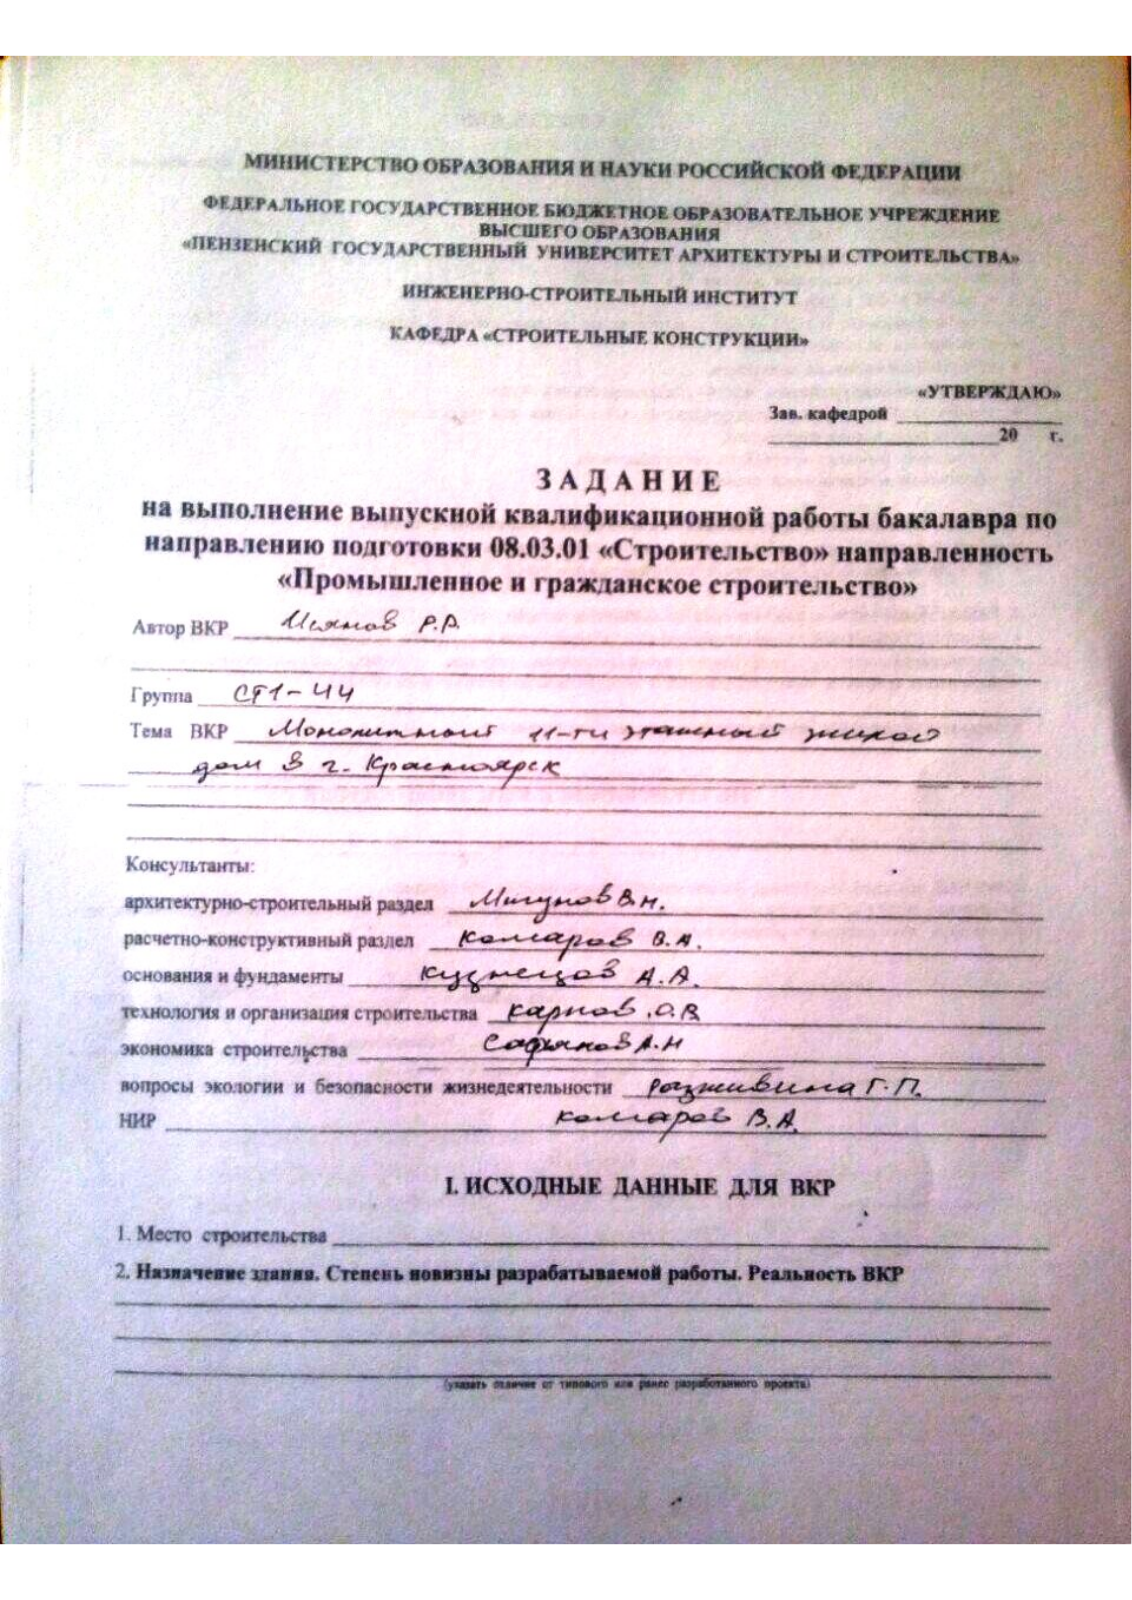 МИНИСТЕРСТВО ОБРАЗОВАНИЯ И НАУКИ РОССИЙСКОЙ ФЕДЕРАЦИИ
ФЕДЕРАЛЬНОЕ ГОСУДАРСТВЕННОЕ БЮДЖЕТНОЕ ОБРАЗОВАТЕЛЬНОЕ УЧРЕЖДЕНИЕ
ВЫСШЕГО ОБРАЗОВАНИЯ
«ПЕНЗЕНСКИЙ ГОСУДАРСТВЕННЫЙ УНИВЕРСИТЕТ АРХИТЕКТУРЫ И СТРОИТЕЛЬСТВА»
ИНЖЕНЕРНО-СТРОИТЕЛЬНЫЙ ИНСТИТУТ
КАФЕДРА «СТРОИТЕЛЬНЫЕ КОНСТРУКЦИИ»
«УТВЕРЖДАЮ»
Зав. кафедрой
20 г.
З А Д А Н И Е
на выполнение выпускной квалификационной работы бакалавра по
направлению подготовки 08.03.01 «Строительство» направленность
«Промышленное и гражданское строительство»
Автор ВКР Р.Р.
Группа СТ1-44
Тема ВКР Монолитный 11-ти этажный жилой
дом в г. Красноярск
Консультанты:
архитектурно-строительный раздел Мигунов В.Н.
расчетно-конструктивный раздел Комаров В.А.
основания и фундаменты Кузнецов А.А.
технология и организация строительства Карпов О.В
экономика строительства Сафьянов А.Н
вопросы экологии и безопасности жизнедеятельности Разживина Г.П.
НИР Комаров В.А.
I. ИСХОДНЫЕ ДАННЫЕ ДЛЯ ВКР
1. Место строительства
2. Назначение здания. Степень новизны разрабатываемой работы. Реальность ВКР
(указать отличие от типового или ранее разработанного проекта)